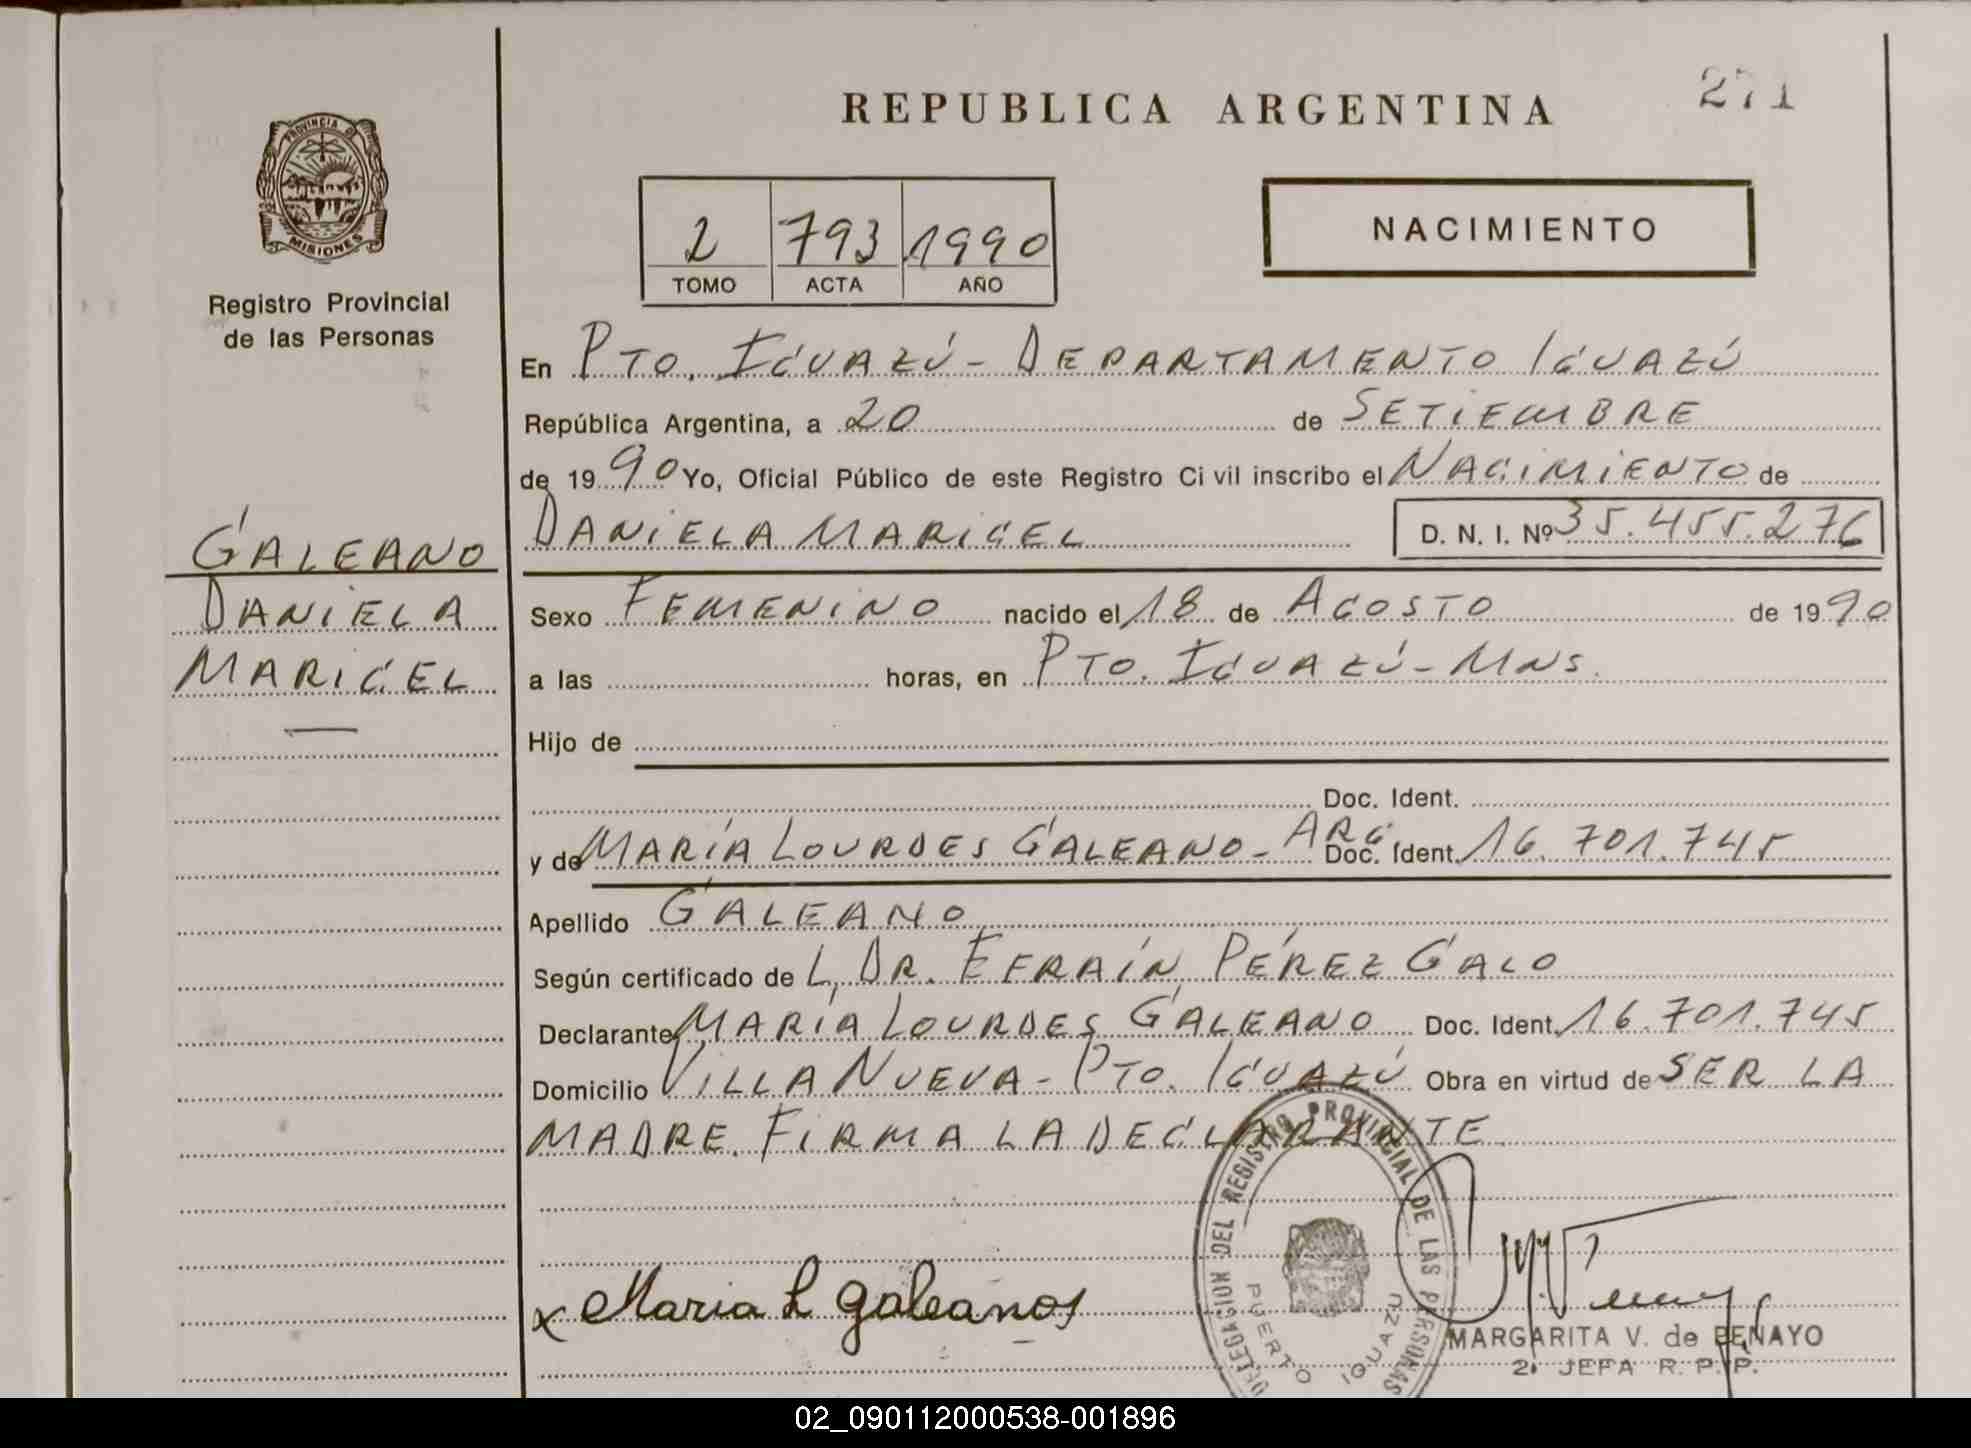 REPUBLICA ARGENTINA
271
PROVINCIA DE
MISIONES
Registro Provincial
de las Personas
2 793 1990
TOMO ACTA AÑO
NACIMIENTO
En PTO. IGUAZÚ - DEPARTAMENTO IGUAZÚ
República Argentina, a 20 de SETIEMBRE
de 1990 Yo, Oficial Público de este Registro Civil inscribo el NACIMIENTO de
DANIELA MARICEL D. N. I. Nº 35.455.276
GALEANO
DANIELA
MARICEL
Sexo FEMENINO nacido el 18 de AGOSTO de 1990
a las horas, en PTO. IGUAZÚ - MNS.
Hijo de
Doc. Ident.
y de MARÍA LOURDES GALEANO - ARG Doc. Ident. 16.701.745
Apellido GALEANO
Según certificado de L, DR. EFRAÍN PÉREZ GALO
Declarante MARÍA LOURDES GALEANO Doc. Ident. 16.701.745
Domicilio VILLA NUEVA - PTO. IGUAZÚ Obra en virtud de SER LA
MADRE. FIRMA LA DECLARANTE
DELEGACION DEL REGISTRO PROVINCIAL DE LAS PERSONAS
PUERTO IGUAZU
x Maria L galeanos
MARGARITA V. de BENAYO
2ª JEFA R. P. P.
02_090112000538-001896